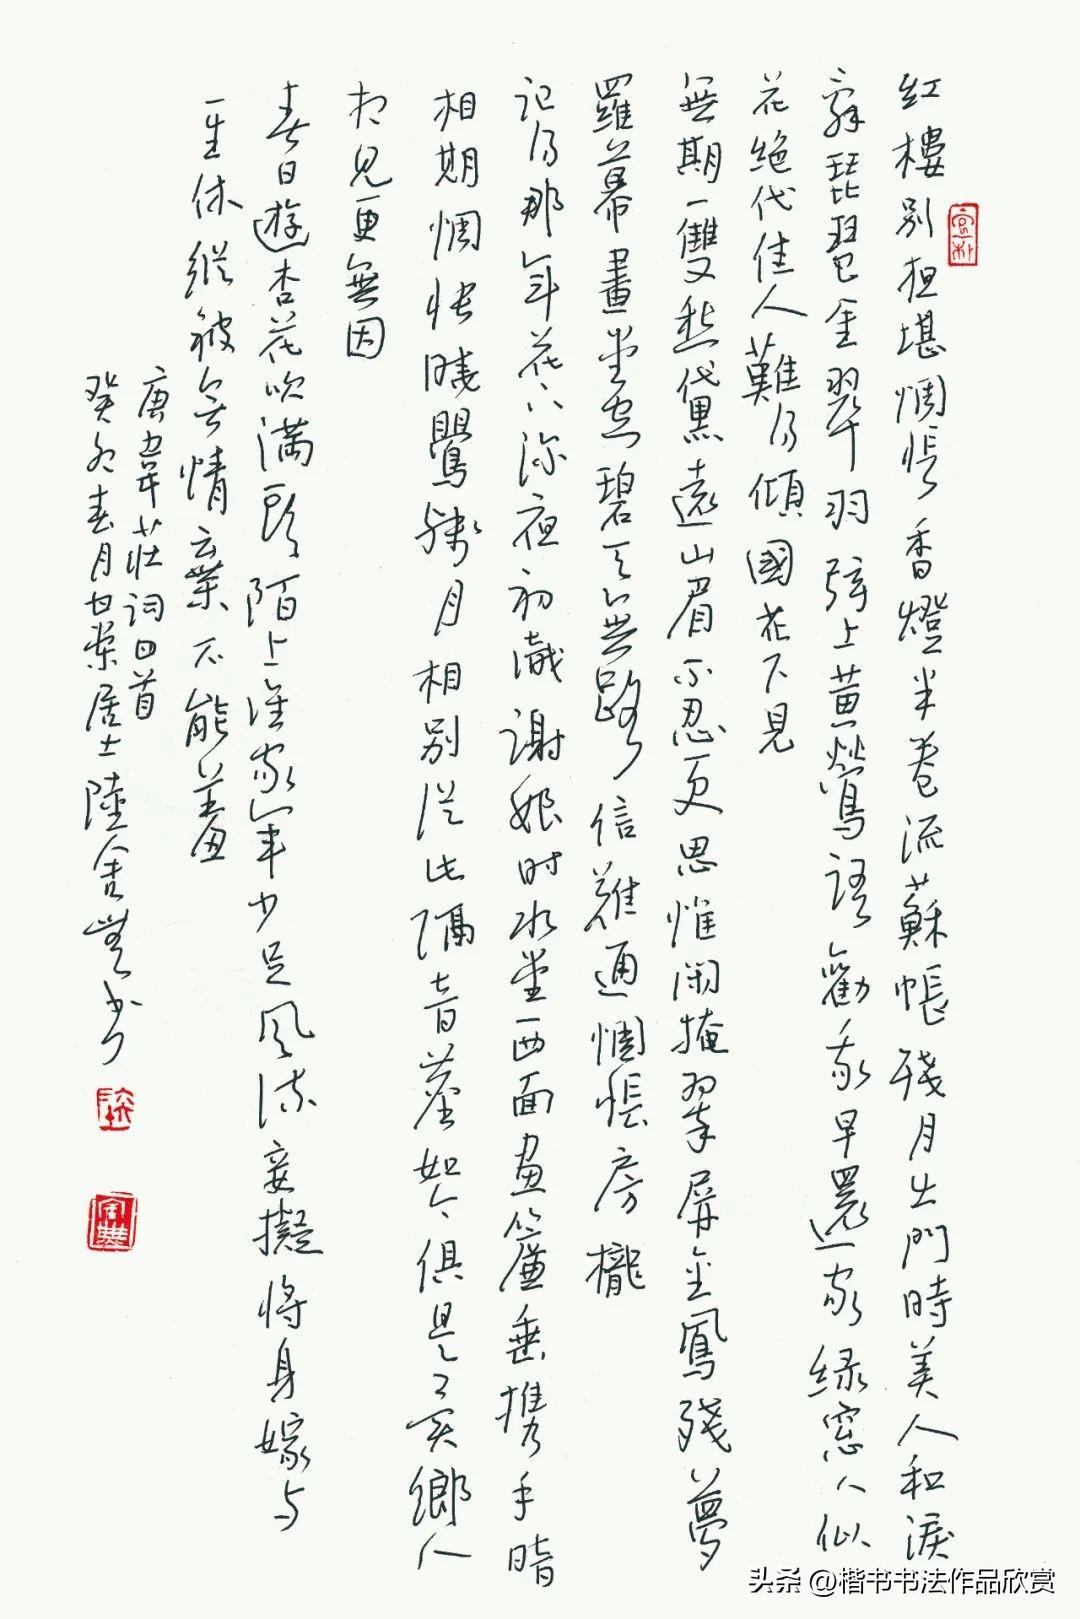 紅樓別夜堪惆悵香燈半卷流蘇帳殘月出門時美人和淚
辭琵琶金翠羽弦上黃鶯語勸我早還家綠窓人似
花絕代佳人難得傾國花下見
無期一雙愁黛遠山眉不忍更思惟閑掩翠屏金鳳殘夢
羅幕畫堂空碧天無路信難通惆悵房櫳
記得那年花下深夜初識謝娘時水堂西面畫簾垂攜手暗
相期惆悵曉鶯殘月相別從此隔音塵如今俱是異鄉人
相見更無因
春日遊杏花吹滿頭陌上誰家年少足風流妾擬將身嫁與
一生休縱被無情棄不能羞
唐韋莊詞四首
癸卯春月居士陸書
头条 @楷书书法作品欣赏